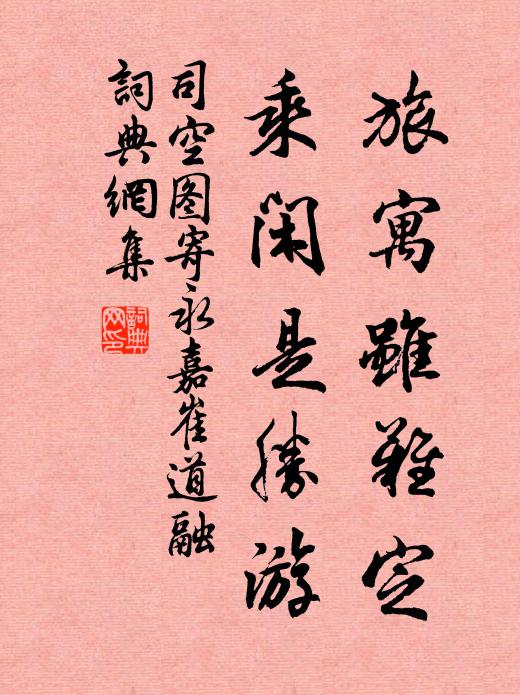 旅寓雖難定
乘閑是勝游
司空图寄永嘉崔道融
詞典網集
詞典网印